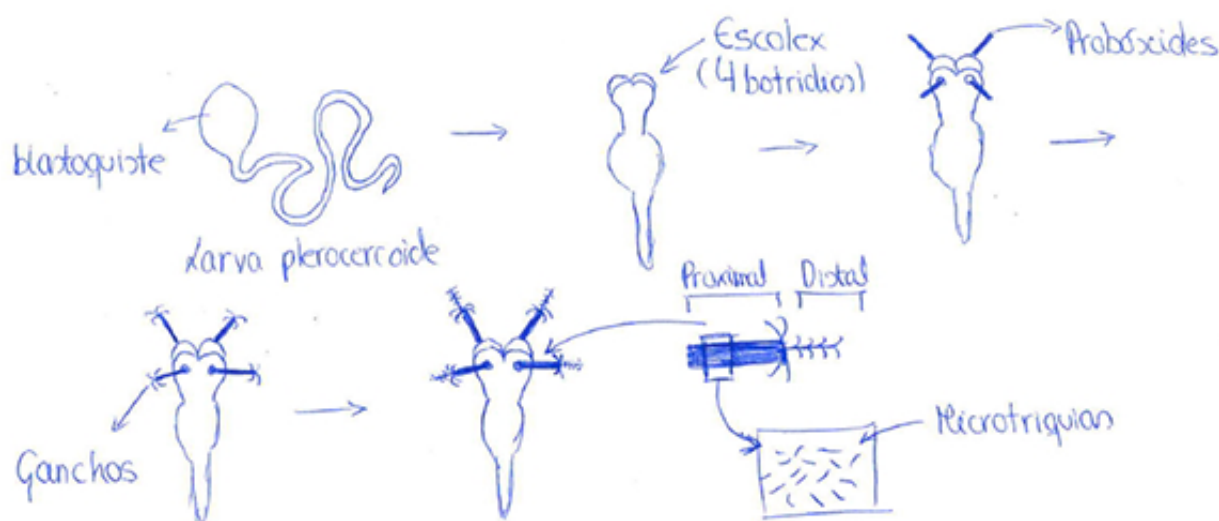 blastoquiste
Larva plerocercoide
Escolex
(4 botridios)
Probóscides
Ganchos
Proximal
Distal
Microtriquias